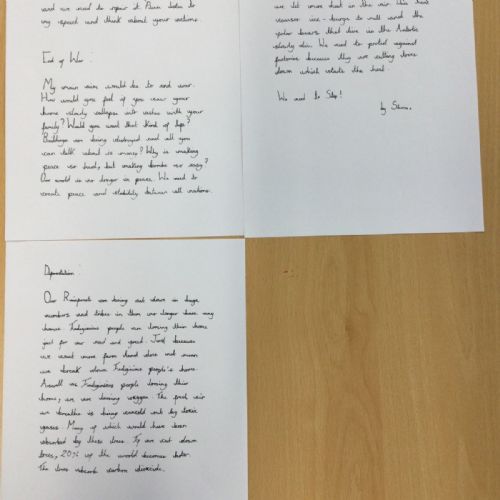 and we need to repair it. Please listen to
my speech and think about your actions.
End of War:
My main aim would be to end war.
How would you feel if you saw your
home slowly collapse with your
family? Would you want that kind of life?
Buildings are being destroyed and all you
can talk about is money? Why is making
peace so hard, but making bombs so easy?
Our world is no longer in peace. We need to
create peace and stability between all nations.
are let more heat in the air. This heat
causes ice-bergs to melt and the
polar bears that live in the
slowly die. We need to protest against
factories because they are cutting trees
down which the heat.
We need to Stop!
by
Deforestation
Our Rainforests are being cut down in huge
numbers and tribes in them no longer have any
homes. Indiginious people are losing their home
just for our need and greed. Just because
we want more farm land does not mean
we break down Indiginious people's home.
As well as Indiginious people losing their
home, we are losing oxygen. The fresh air
we breathe is being out by toxic
gases. Many of which would have been
absorbed by these trees. If we cut down
trees, 20% of the world becomes hotter.
The trees absorb carbon dioxide.